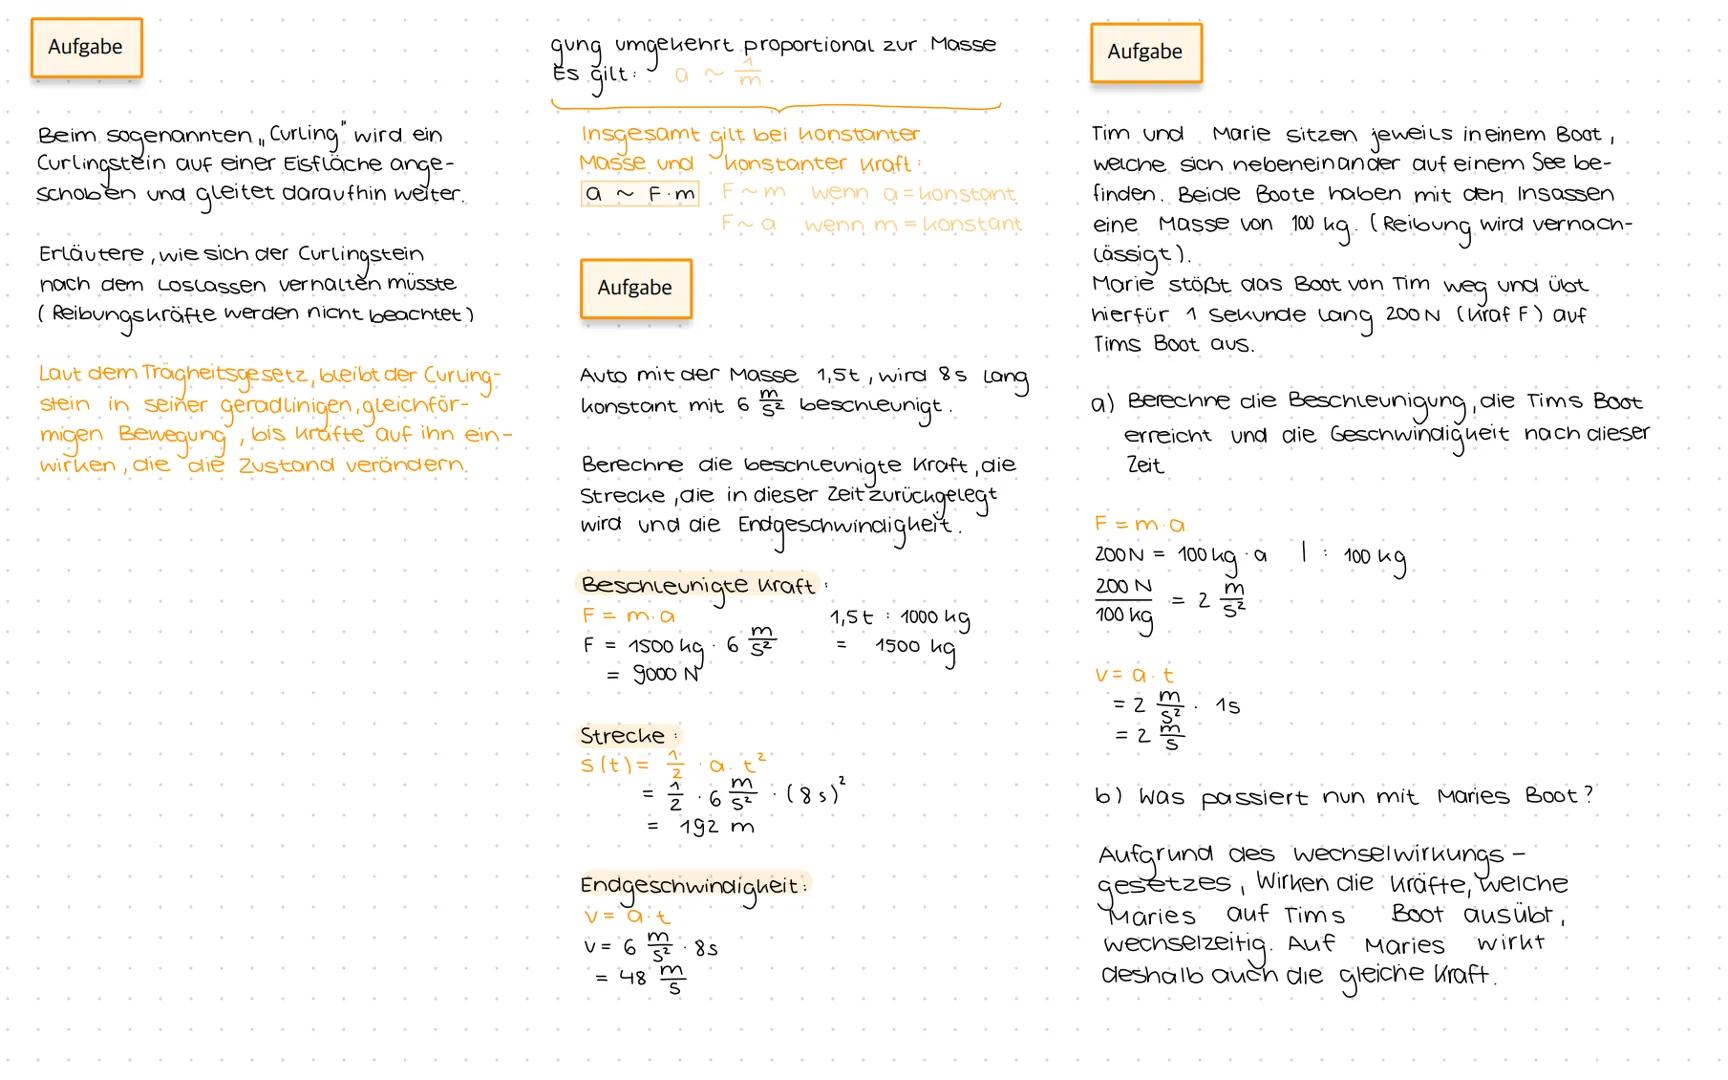 Aufgabe
Beim sogenannten „Curling" wird ein
Curlingstein auf einer Eisfläche ange-
schoben und gleitet daraufhin weiter.
Erläutere, wie sich der Curlingstein
nach dem Loslassen verhalten müsste
(Reibungskräfte werden nicht beachtet)
Laut dem Trägheitsgesetz, bleibt der Curling-
stein in seiner geradlinigen, gleichför-
migen Bewegung, bis Kräfte auf ihn ein-
wirken, die die Zustand verändern.
gung umgekehrt proportional zur Masse
Es gilt: a ~ 1/m
Insgesamt gilt bei konstanter
Masse und konstanter Kraft:
a ~ F·m F~m wenn a = konstant
F~a wenn m = konstant
Aufgabe
Auto mit der Masse 1,5t, wird 8s lang
konstant mit 6 m/s² beschleunigt.
Berechne die beschleunigte Kraft, die
Strecke, die in dieser Zeit zurückgelegt
wird und die Endgeschwindigkeit.
Beschleunigte Kraft:
F = m·a 1,5t : 1000 kg
F = 1500 kg · 6 m/s² = 1500 kg
= 9000 N
Strecke:
s(t) = 1/2 · a · t²
= 1/2 · 6 m/s² · (8s)²
= 192 m
Endgeschwindigkeit:
v = a·t
v = 6 m/s² · 8s
= 48 m/s
Aufgabe
Tim und Marie sitzen jeweils in einem Boot,
welche sich nebeneinander auf einem See be-
finden. Beide Boote haben mit den Insassen
eine Masse von 100 kg. (Reibung wird vernach-
lässigt).
Marie stößt das Boot von Tim weg und übt
hierfür 1 Sekunde lang 200N (Kraf F) auf
Tims Boot aus.
a) Berechne die Beschleunigung, die Tims Boot
erreicht und die Geschwindigkeit nach dieser
Zeit
F = m·a
200N = 100kg · a | : 100 kg
200 N/100 kg = 2 m/s²
v = a·t
= 2 m/s² · 1s
= 2 m/s
b) Was passiert nun mit Maries Boot?
Aufgrund des Wechselwirkungs-
gesetzes, Wirken die Kräfte, welche
Maries auf Tims Boot ausübt,
wechselzeitig. Auf Maries wirkt
deshalb auch die gleiche Kraft.